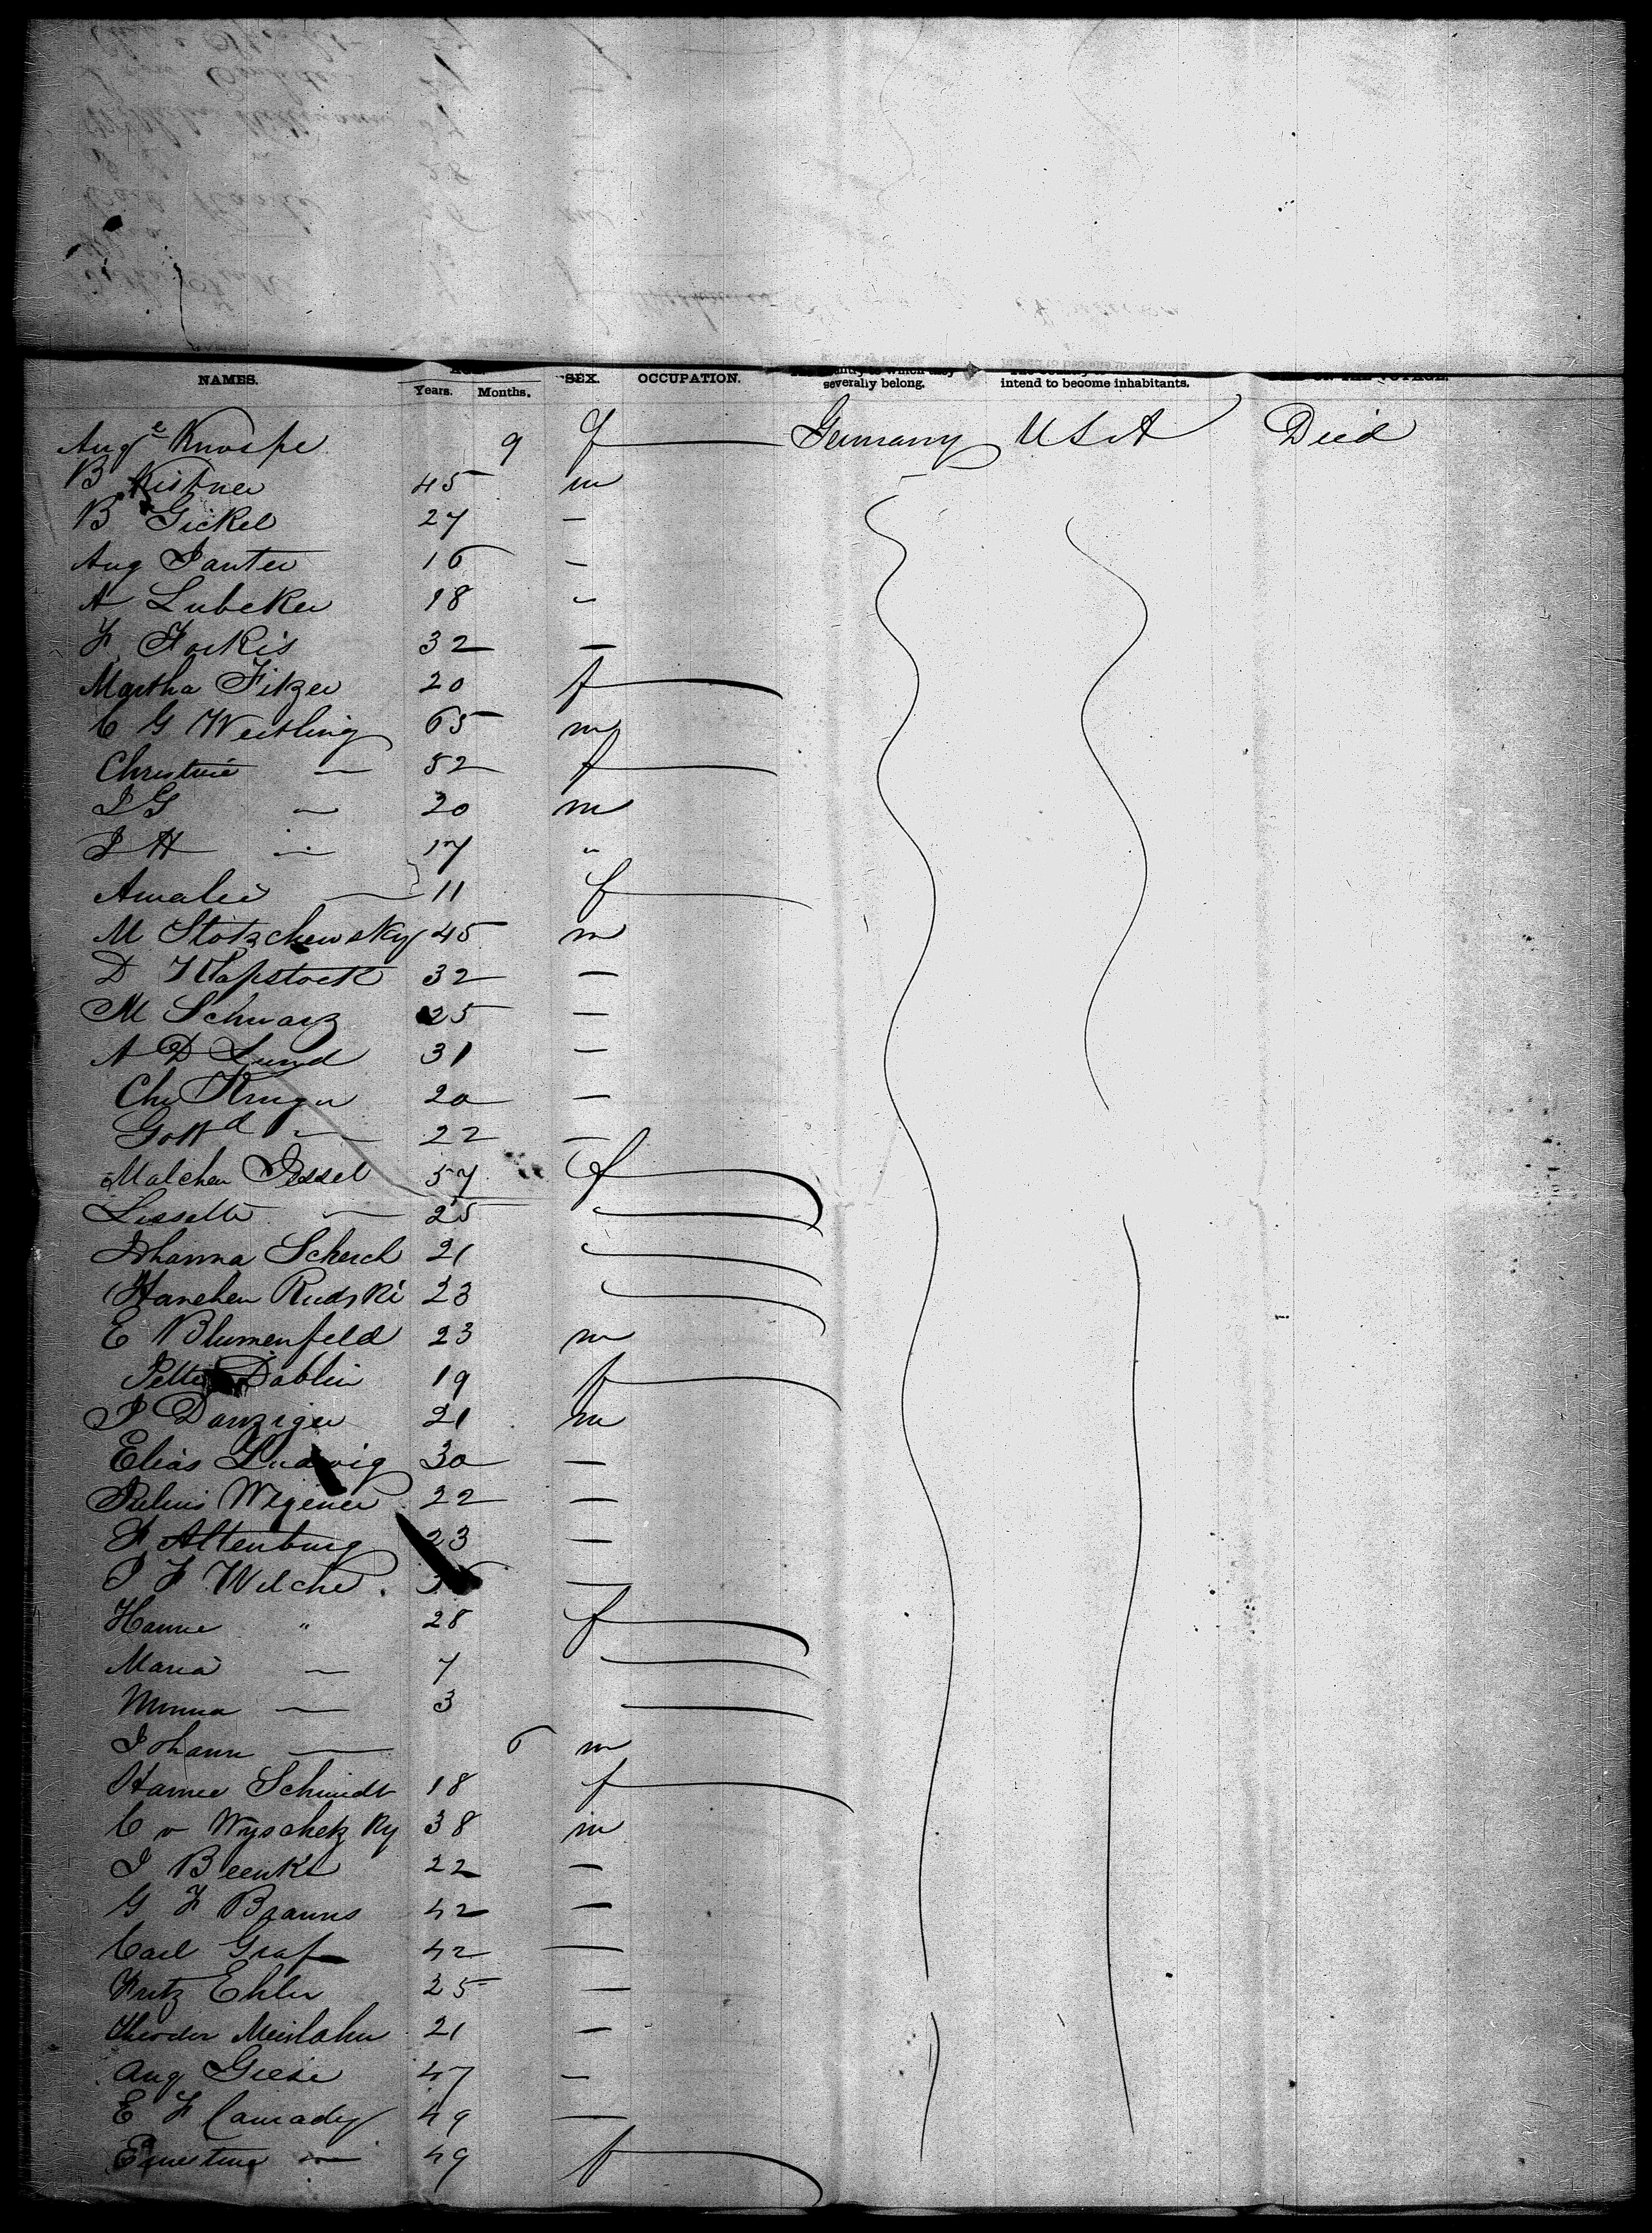 NAMES. SEX. OCCUPATION. severally belong. intend to become inhabitants.
Years. Months.
Aug^e Knospe 9 f Germany U S A Died
B Kistner 45 m
B Gickel 27 —
Aug Janter 16 —
A Lubeker 18 -
F. Forkis 32 —
Martha Fitzer 20 f
C G Weitling 65 m
Christine — 52 f
I G — 20 m
I H — 17 "
Amalie — 11 f
M Stotzchewsky 45 m
D Klapstock 32 —
M Schwarz 25 —
A D Lund 31 —
Chr Kruger 20 —
Gott^d — 22 —
Malchen Jessel 57 f
Lissette — 25
Johanna Scherch 21
Hanchen Rudski 23
E Blumenfeld 23 m
Dablin 19 f
J Danziger 21 m
Elias Ludwig 30 —
Julius Wegener 22 —
F Altenburg 23 —
J F Wilche —
Hanne " 28 f
Maria — 7
Minna — 3
Johann — 6 m
Hanne Schmidt 18 f
C v Wyschetzky 38 m
I Beenke 22 —
G F Brauns 42 —
Carl Graf 42 —
Fritz Ehler 25 —
Theodor Meinlahn 21 —
Aug Giese 47 —
E F Camrady 49 —
Ernestine — 49 f